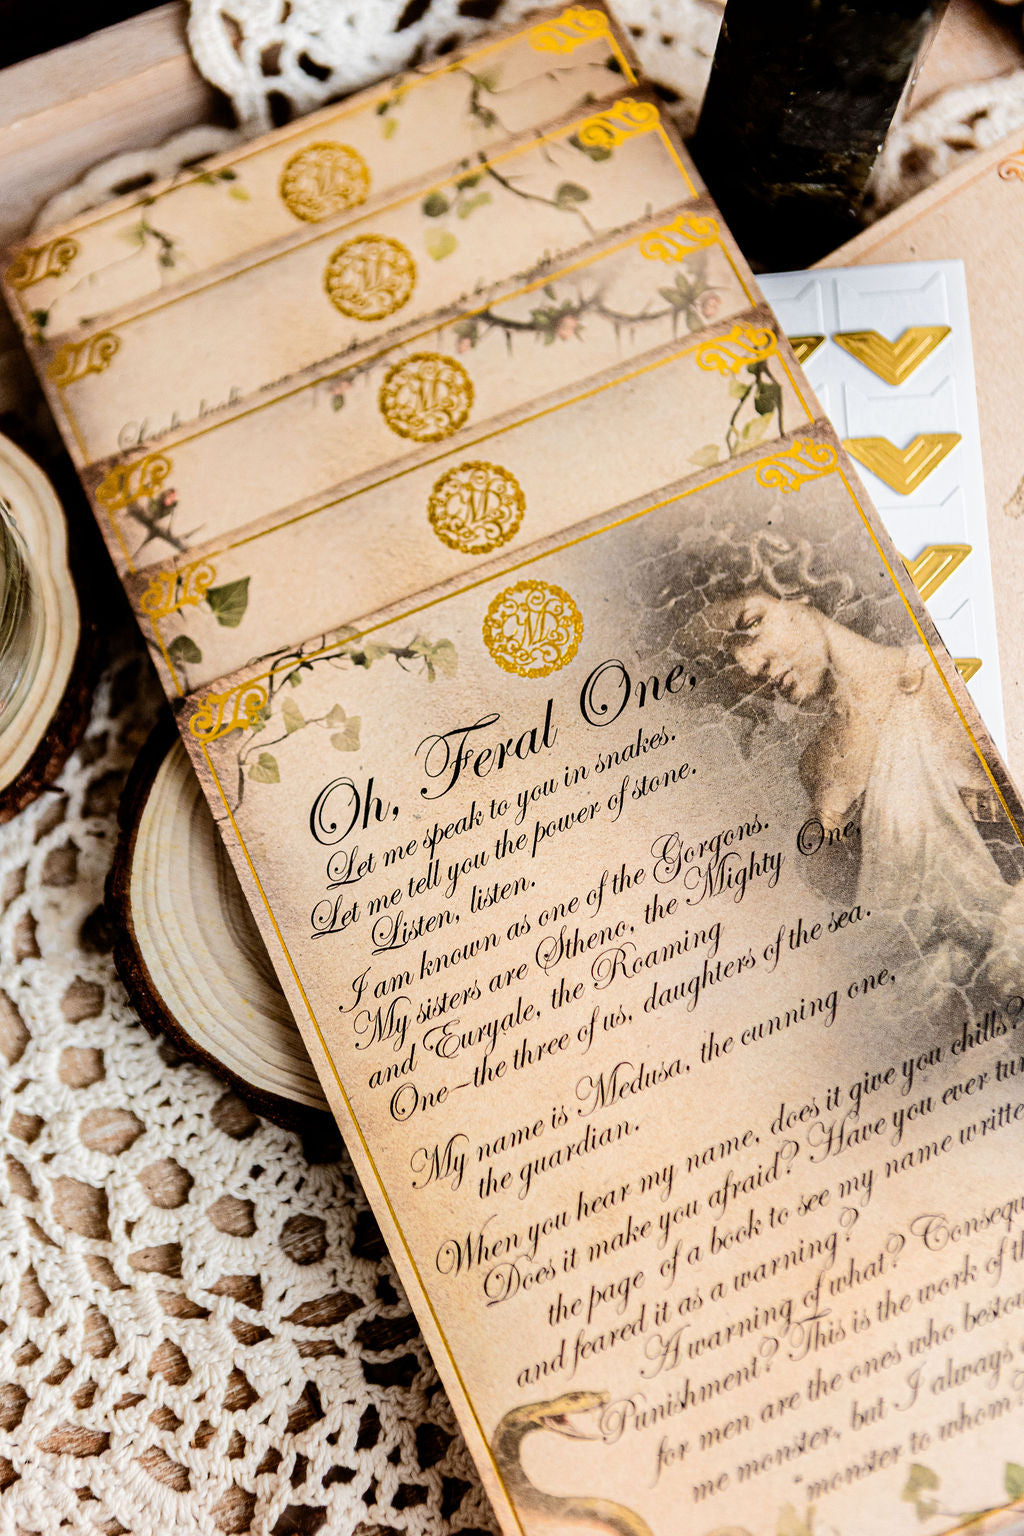 M
M
M
M
M
Oh, Feral One,
Let me speak to you in snakes.
Let me tell you the power of stone.
Listen, listen.
I am known as one of the Gorgons.
My sisters are Stheno, the Mighty One,
and Euryale, the Roaming
One—the three of us, daughters of the sea.
My name is Medusa, the cunning one,
the guardian.
When you hear my name, does it give you chills?
Does it make you afraid? Have you ever
the page of a book to see my name
and feared it as a warning?
A warning of what?
Punishment? This is the work of
for men are the ones who
me monster, but I always
"monster to whom?